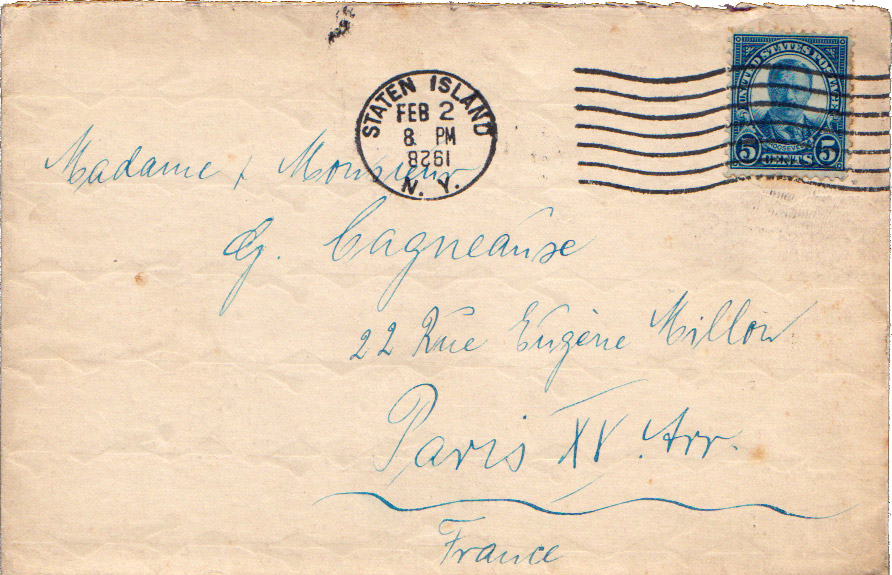 STATEN ISLAND
FEB 2
8 PM
1928
N. Y.
UNITED STATES POSTAGE
ROOSEVELT
5 CENTS 5
Madame & Monsieur
G. Cagneause
22 Rue Eugène Millon
Paris XV Arr.
France